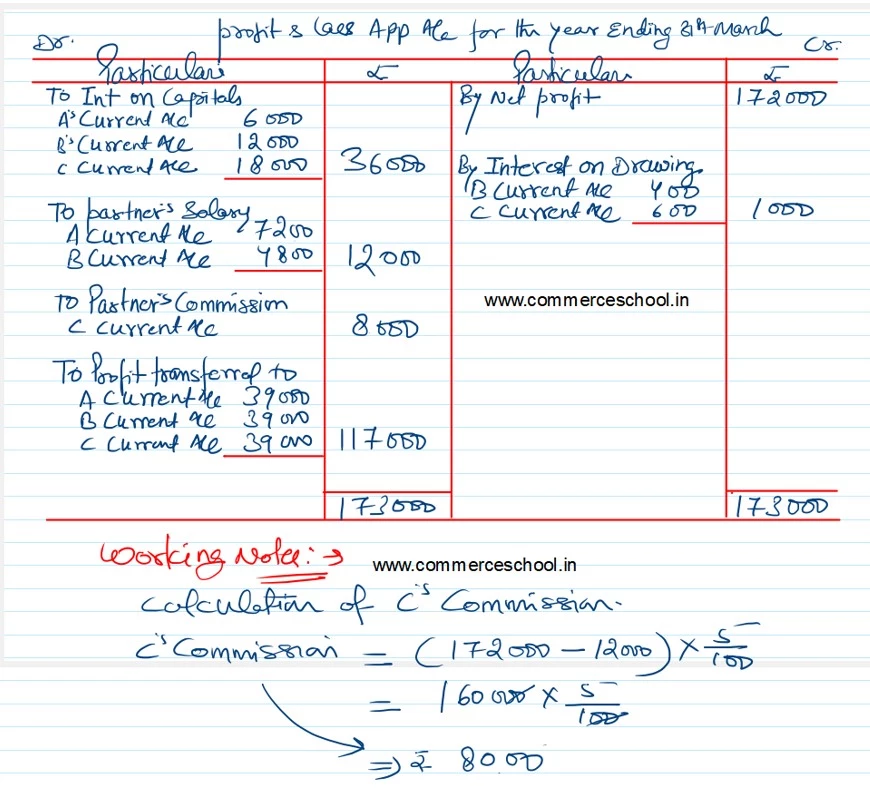 Profit & Loss App A/c for the year Ending 31st March
Dr. Cr.
Particulars ₹ Particulars ₹
To Int on Capitals By Net profit 172000
A's Current A/c 6000
B's Current A/c 12000
C Current A/c 18000 36000 By Interest on Drawing
B Current A/c 400
To partner's Salary C Current A/c 600 1000
A Current A/c 7200
B Current A/c 4800 12000
www.commerceschool.in
To Partner's Commission
C Current A/c 8000
To Profit transferred to
A Current A/c 39000
B Current A/c 39000
C Current A/c 39000 117000
173000 173000
Working Note:→
www.commerceschool.in
Calculation of C's Commission.
C's Commission = (172000 - 12000) × 5/100
= 160000 × 5/100
⇒ ₹ 8000